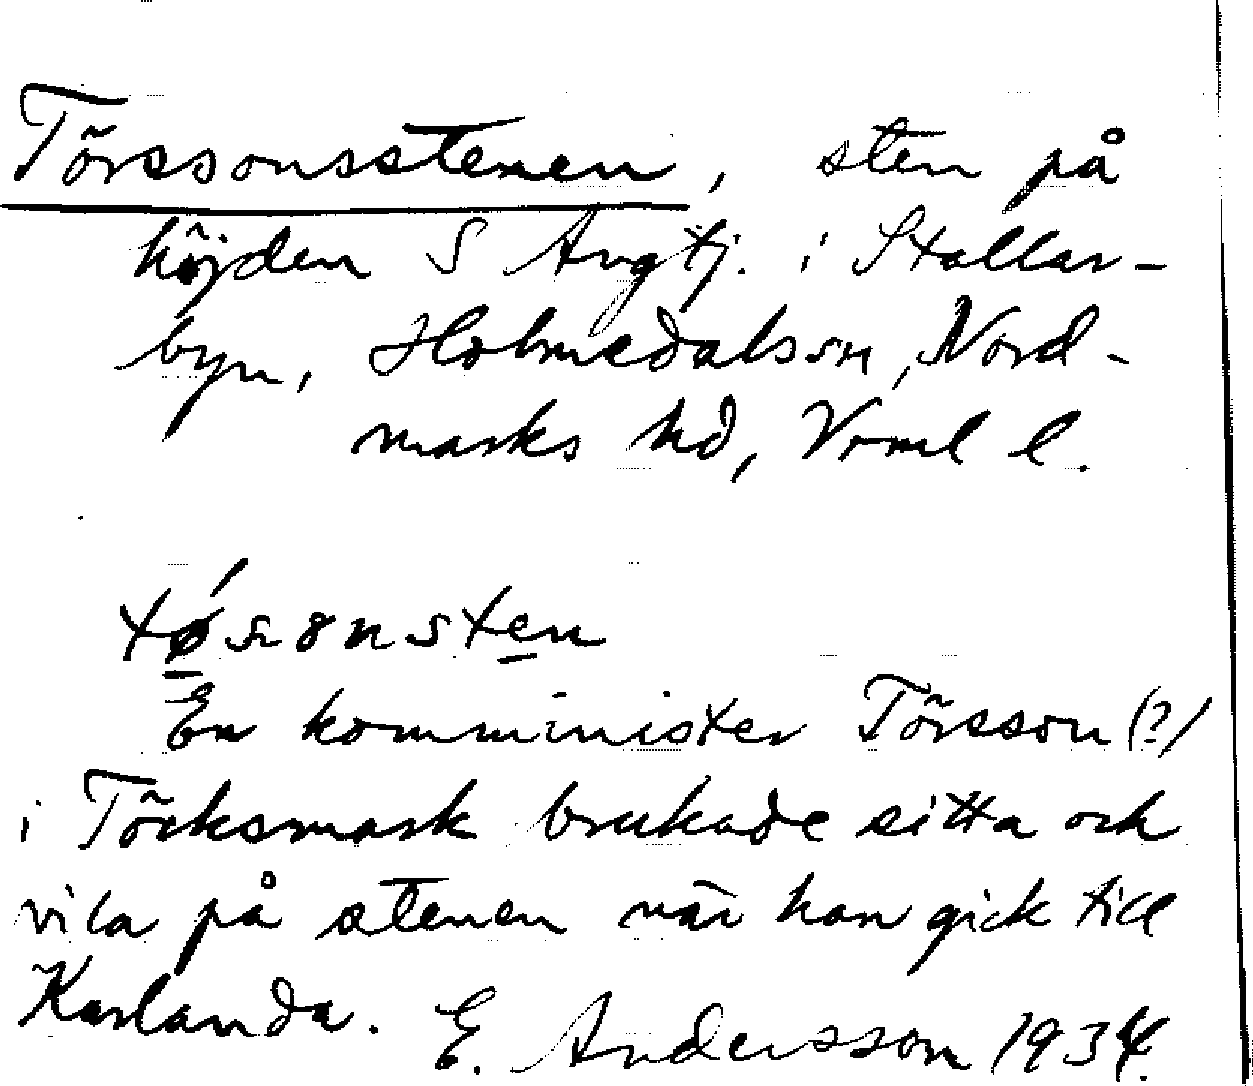 Törssonsstenen, sten på
höjden S Avgtj. i Stallar-
byn, Holmedals sn, Nord-
marks hd, Vrml l.
En komminister Törsson (?)
i Töcksmark brukade sitta och
vila på stenen när han gick till
Karlanda. E. Andersson 1934.